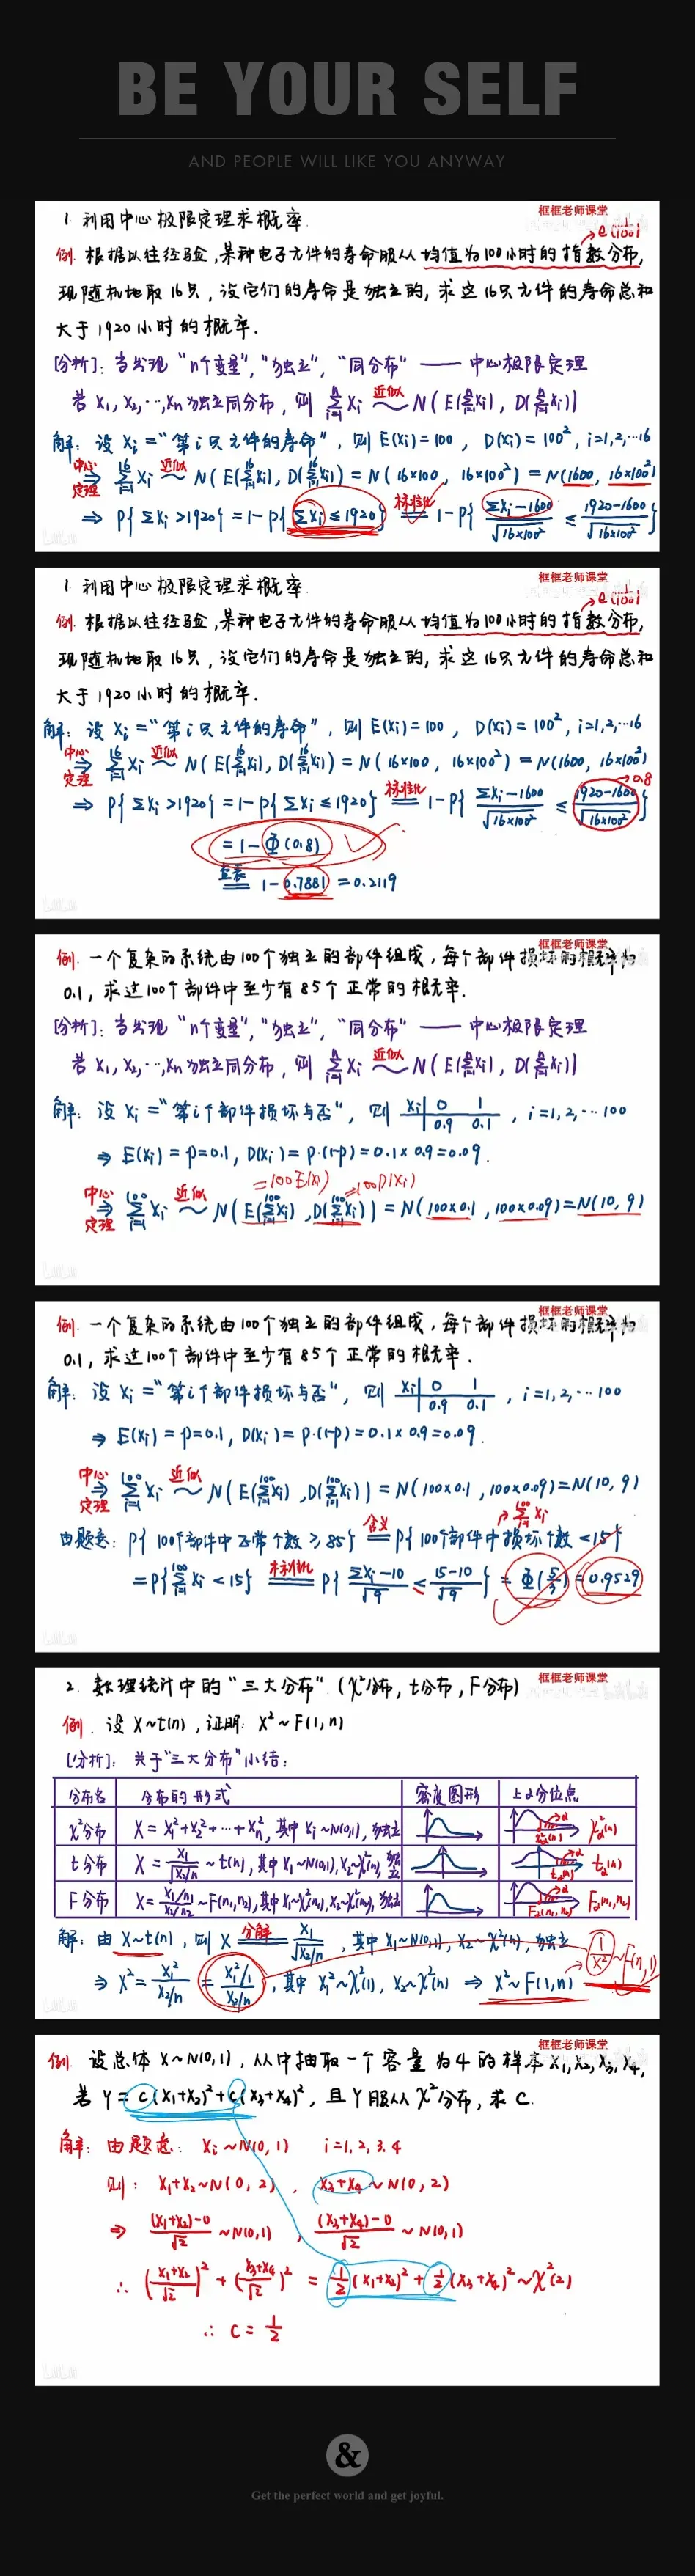 BE YOUR SELF
AND PEOPLE WILL LIKE YOU ANYWAY
框框老师课堂
1. 利用中心极限定理求概率.
e(1/100)
例. 根据以往经验,某种电子元件的寿命服从均值为100小时的指数分布,
现随机地取16只,设它们的寿命是独立的,求这16只元件的寿命总和
大于1920小时的概率.
[分析]: 当发现 "n个变量", "独立", "同分布" —— 中心极限定理
若 X₁, X₂, ⋯, Xn 独立同分布, 则 Σ(i=1→n) Xi 近似~ N( E(Σ(i=1→n) Xi), D(Σ(i=1→n) Xi))
解: 设 Xi = "第i只元件的寿命", 则 E(Xi) = 100, D(Xi) = 100², i=1,2,⋯16
中心定理 ⇒ Σ(i=1→16) Xi 近似~ N( E(Σ(i=1→16) Xi), D(Σ(i=1→16) Xi)) = N( 16×100, 16×100²) = N(1600, 16×100²)
⇒ P{ ΣXi >1920} = 1-P{ ΣXi ≤1920} 标准化 = 1-P{ (ΣXi-1600)/√(16×100²) ≤ (1920-1600)/√(16×100²) }
框框老师课堂
1. 利用中心极限定理求概率.
e(1/100)
例. 根据以往经验,某种电子元件的寿命服从均值为100小时的指数分布,
现随机地取16只,设它们的寿命是独立的,求这16只元件的寿命总和
大于1920小时的概率.
解: 设 Xi = "第i只元件的寿命", 则 E(Xi) = 100, D(Xi) = 100², i=1,2,⋯16
中心定理 ⇒ Σ(i=1→16) Xi 近似~ N( E(Σ(i=1→16) Xi), D(Σ(i=1→16) Xi)) = N( 16×100, 16×100²) = N(1600, 16×100²)
→0.8
⇒ P{ ΣXi >1920} = 1-P{ ΣXi ≤1920} 标准化 = 1-P{ (ΣXi-1600)/√(16×100²) ≤ (1920-1600)/√(16×100²) }
= 1-Φ(0.8)
查表 = 1-0.7881 = 0.2119
框框老师课堂
例. 一个复杂的系统由100个独立的部件组成,每个部件损坏的概率为
0.1, 求这100个部件中至少有85个正常的概率.
[分析]: 当发现 "n个变量", "独立", "同分布" —— 中心极限定理
若 X₁, X₂, ⋯, Xn 独立同分布, 则 Σ(i=1→n) Xi 近似~ N( E(Σ(i=1→n) Xi), D(Σ(i=1→n) Xi))
解: 设 Xi = "第i个部件损坏与否", 则 Xi | 0 1, i=1,2,⋯100
0.9 0.1
⇒ E(Xi) = p=0.1, D(Xi) = p·(1-p)=0.1×0.9=0.09.
=100E(Xi) =100D(Xi)
中心定理 ⇒ Σ(i=1→100) Xi 近似~ N( E(Σ(i=1→100) Xi), D(Σ(i=1→100) Xi)) = N(100×0.1, 100×0.09)=N(10, 9)
框框老师课堂
例. 一个复杂的系统由100个独立的部件组成,每个部件损坏的概率为
0.1, 求这100个部件中至少有85个正常的概率.
解: 设 Xi = "第i个部件损坏与否", 则 Xi | 0 1, i=1,2,⋯100
0.9 0.1
⇒ E(Xi) = p=0.1, D(Xi) = p·(1-p)=0.1×0.9=0.09.
中心定理 ⇒ Σ(i=1→100) Xi 近似~ N( E(Σ(i=1→100) Xi), D(Σ(i=1→100) Xi)) = N(100×0.1, 100×0.09)=N(10, 9)
Σ(i=1→100) Xi
由题意: P{ 100个部件中正常个数 ≥ 85} 含义 = P{ 100个部件中损坏个数 <15}
=P{ Σ(i=1→100) Xi < 15} 标准化 = P{ (ΣXi-10)/√9 ≤ (15-10)/√9 } = Φ(5/3) = 0.9529
框框老师课堂
2. 数理统计中的 "三大分布". (χ²分布, t分布, F分布)
例. 设 X~t(n), 证明: X² ~ F(1,n)
[分析]: 关于"三大分布"小结:
分布名 分布的形式 密度图形 上α分位点
χ²分布 X = X₁²+X₂²+⋯+Xn², 其中 Xi ~N(0,1), 独立 α χ²α(n) χ²α(n)
t分布 X = X₁/√(X₂/n) ~ t(n), 其中 X₁~N(0,1), X₂~χ²(n), 独立 α tα(n) tα(n)
F分布 X = (X₁/n₁)/(X₂/n₂) ~F(n₁,n₂), 其中 X₁~χ²(n₁), X₂~χ²(n₂), 独立 α Fα(n₁,n₂) Fα(n₁,n₂)
解: 由 X~t(n), 则 X 分解 = X₁/√(X₂/n), 其中 X₁~N(0,1), X₂~χ²(n), 独立
1/X² ~F(n,1)
⇒ X² = X₁²/(X₂/n) = (X₁²/1)/(X₂/n), 其中 X₁²~χ²(1), X₂~χ²(n) ⇒ X²~F(1,n)
框框老师课堂
例. 设总体 X~N(0,1), 从中抽取一个容量为4的样本 X₁,X₂,X₃,X₄,
若 Y = c(X₁+X₂)²+c(X₃+X₄)², 且Y服从χ²分布, 求 C.
解: 由题意: Xi ~N(0,1) i=1,2,3,4
则: X₁+X₂~N(0,2), X₃+X₄~N(0,2)
⇒ ((X₁+X₂)-0)/√2 ~N(0,1), ((X₃+X₄)-0)/√2 ~N(0,1)
∴ ((X₁+X₂)/√2)² + ((X₃+X₄)/√2)² = 1/2(X₁+X₂)²+1/2(X₃+X₄)²~χ²(2)
∴ C = 1/2
&
Get the perfect world and get joyful.